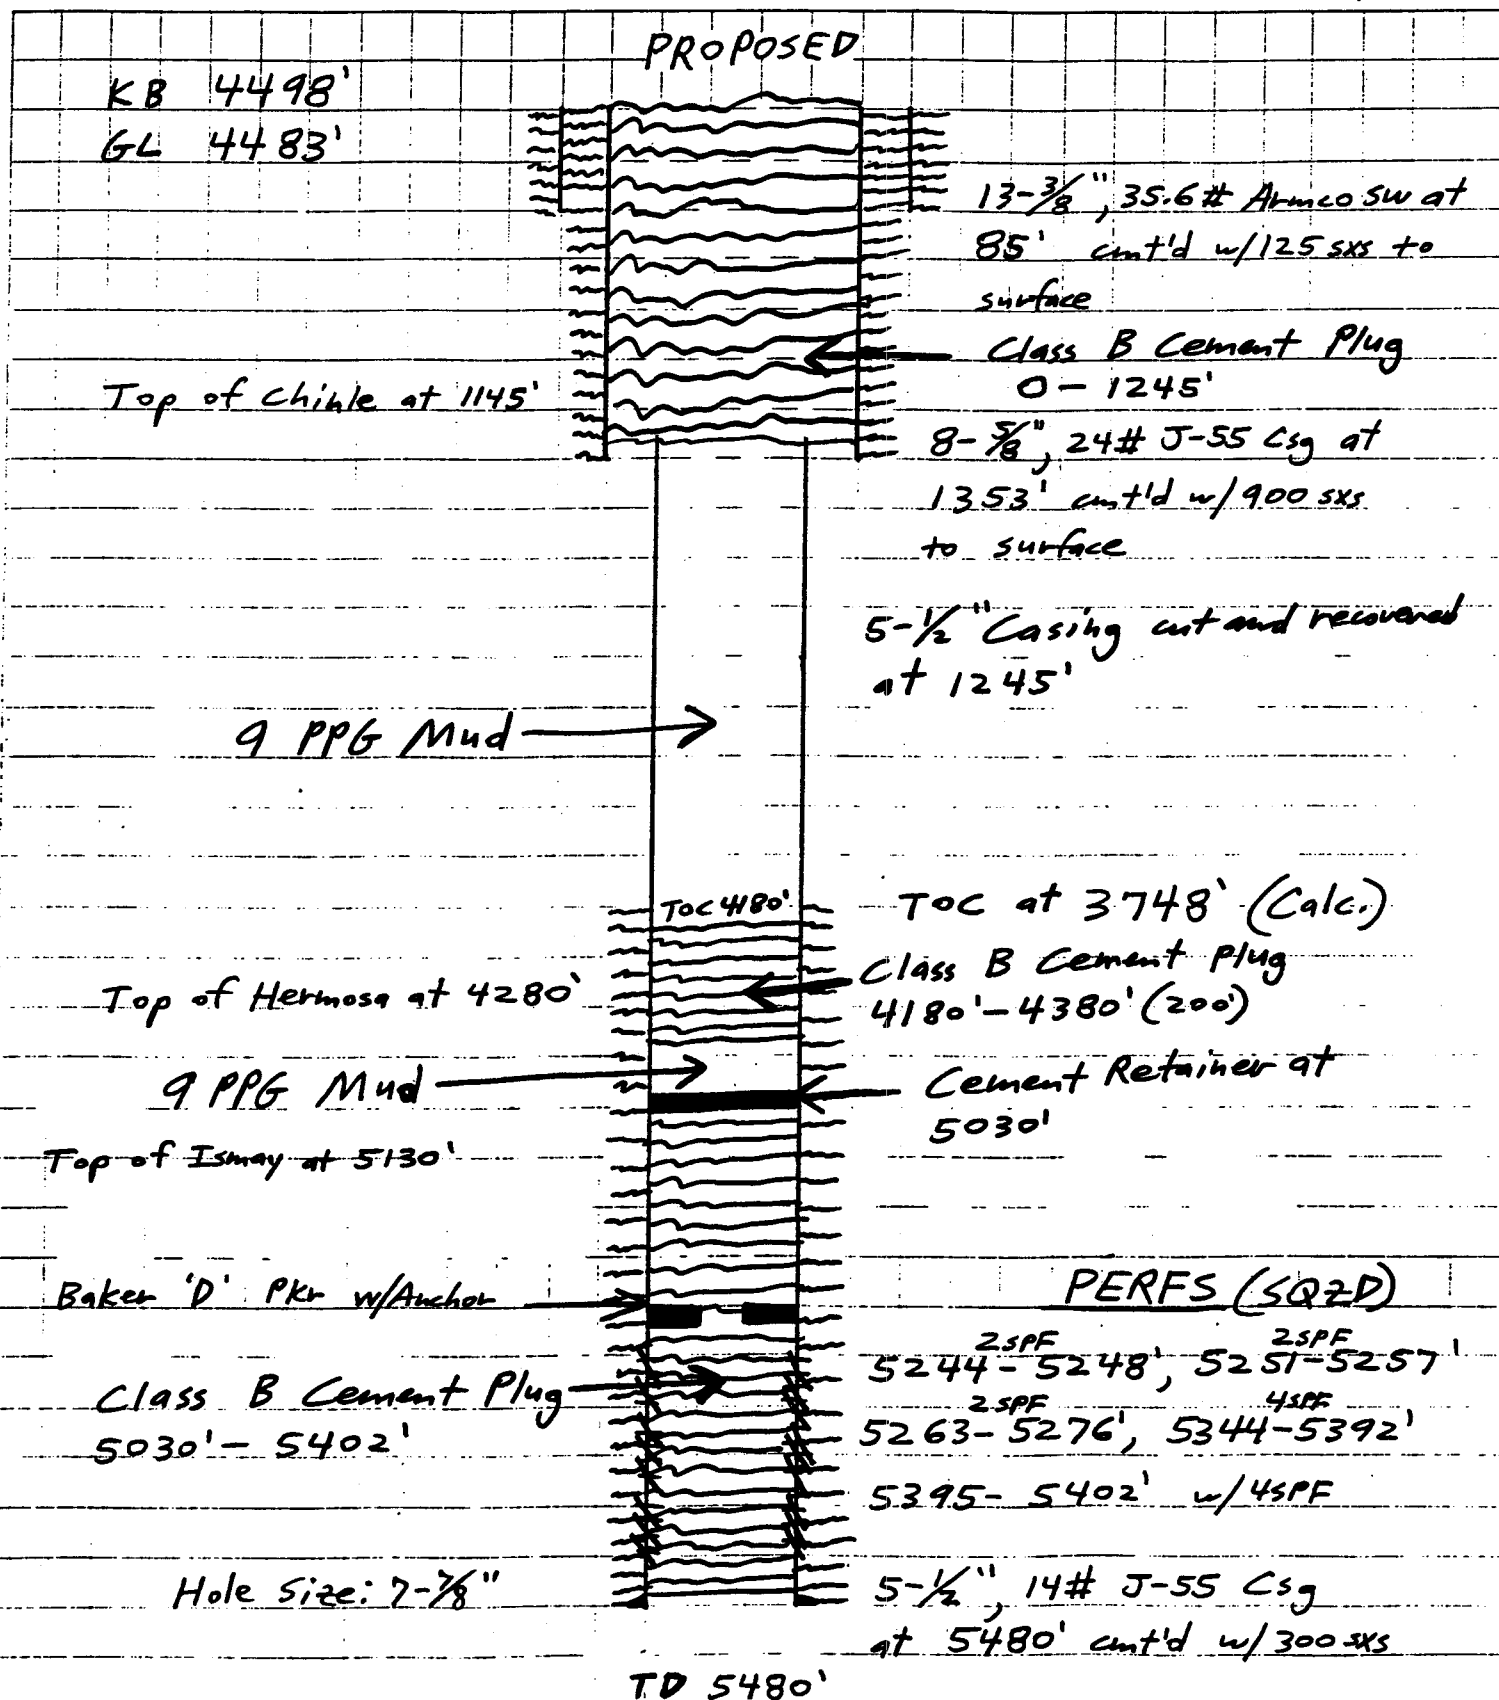 PROPOSED
KB 4498'
GL 4483'
13-3/8", 35.6# Armco SW at
85' cmt'd w/125 sxs to
surface
Class B Cement Plug
0-1245'
Top of Chinle at 1145'
8-5/8", 24# J-55 Csg at
1353' cmt'd w/900 sxs
to surface
5-1/2" Casing cut and recovered
at 1245'
9 PPG Mud
TOC 4180'
TOC at 3748' (Calc.)
Class B Cement Plug
4180'-4380' (200')
Top of Hermosa at 4280'
9 PPG Mud
Cement Retainer at
5030'
Top of Ismay at 5130'
Baker 'D' Pkr w/Anchor
PERFS (SQZD)
2SPF 2SPF
5244-5248', 5251-5257'
2SPF 4SPF
5263-5276', 5344-5392'
5395-5402' w/4SPF
Class B Cement Plug
5030'-5402'
Hole Size: 7-7/8"
5-1/2", 14# J-55 Csg
at 5480' cmt'd w/300 sxs
TD 5480'